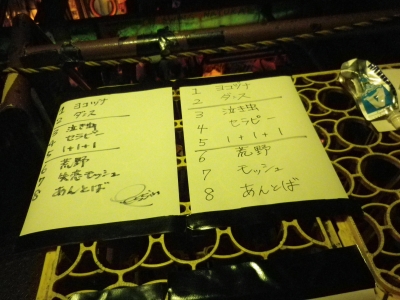 1 ヨコヅナ
2 ダンス
3 泣き虫
4 セラピー
5 1+1+1
6 荒野
7 失恋モッシュ
8 あんとば
1 ヨコヅナ
2 ダンス
3 泣き虫
4 セラピー
5 1+1+1
6 荒野
7 モッシュ
8 あんとば